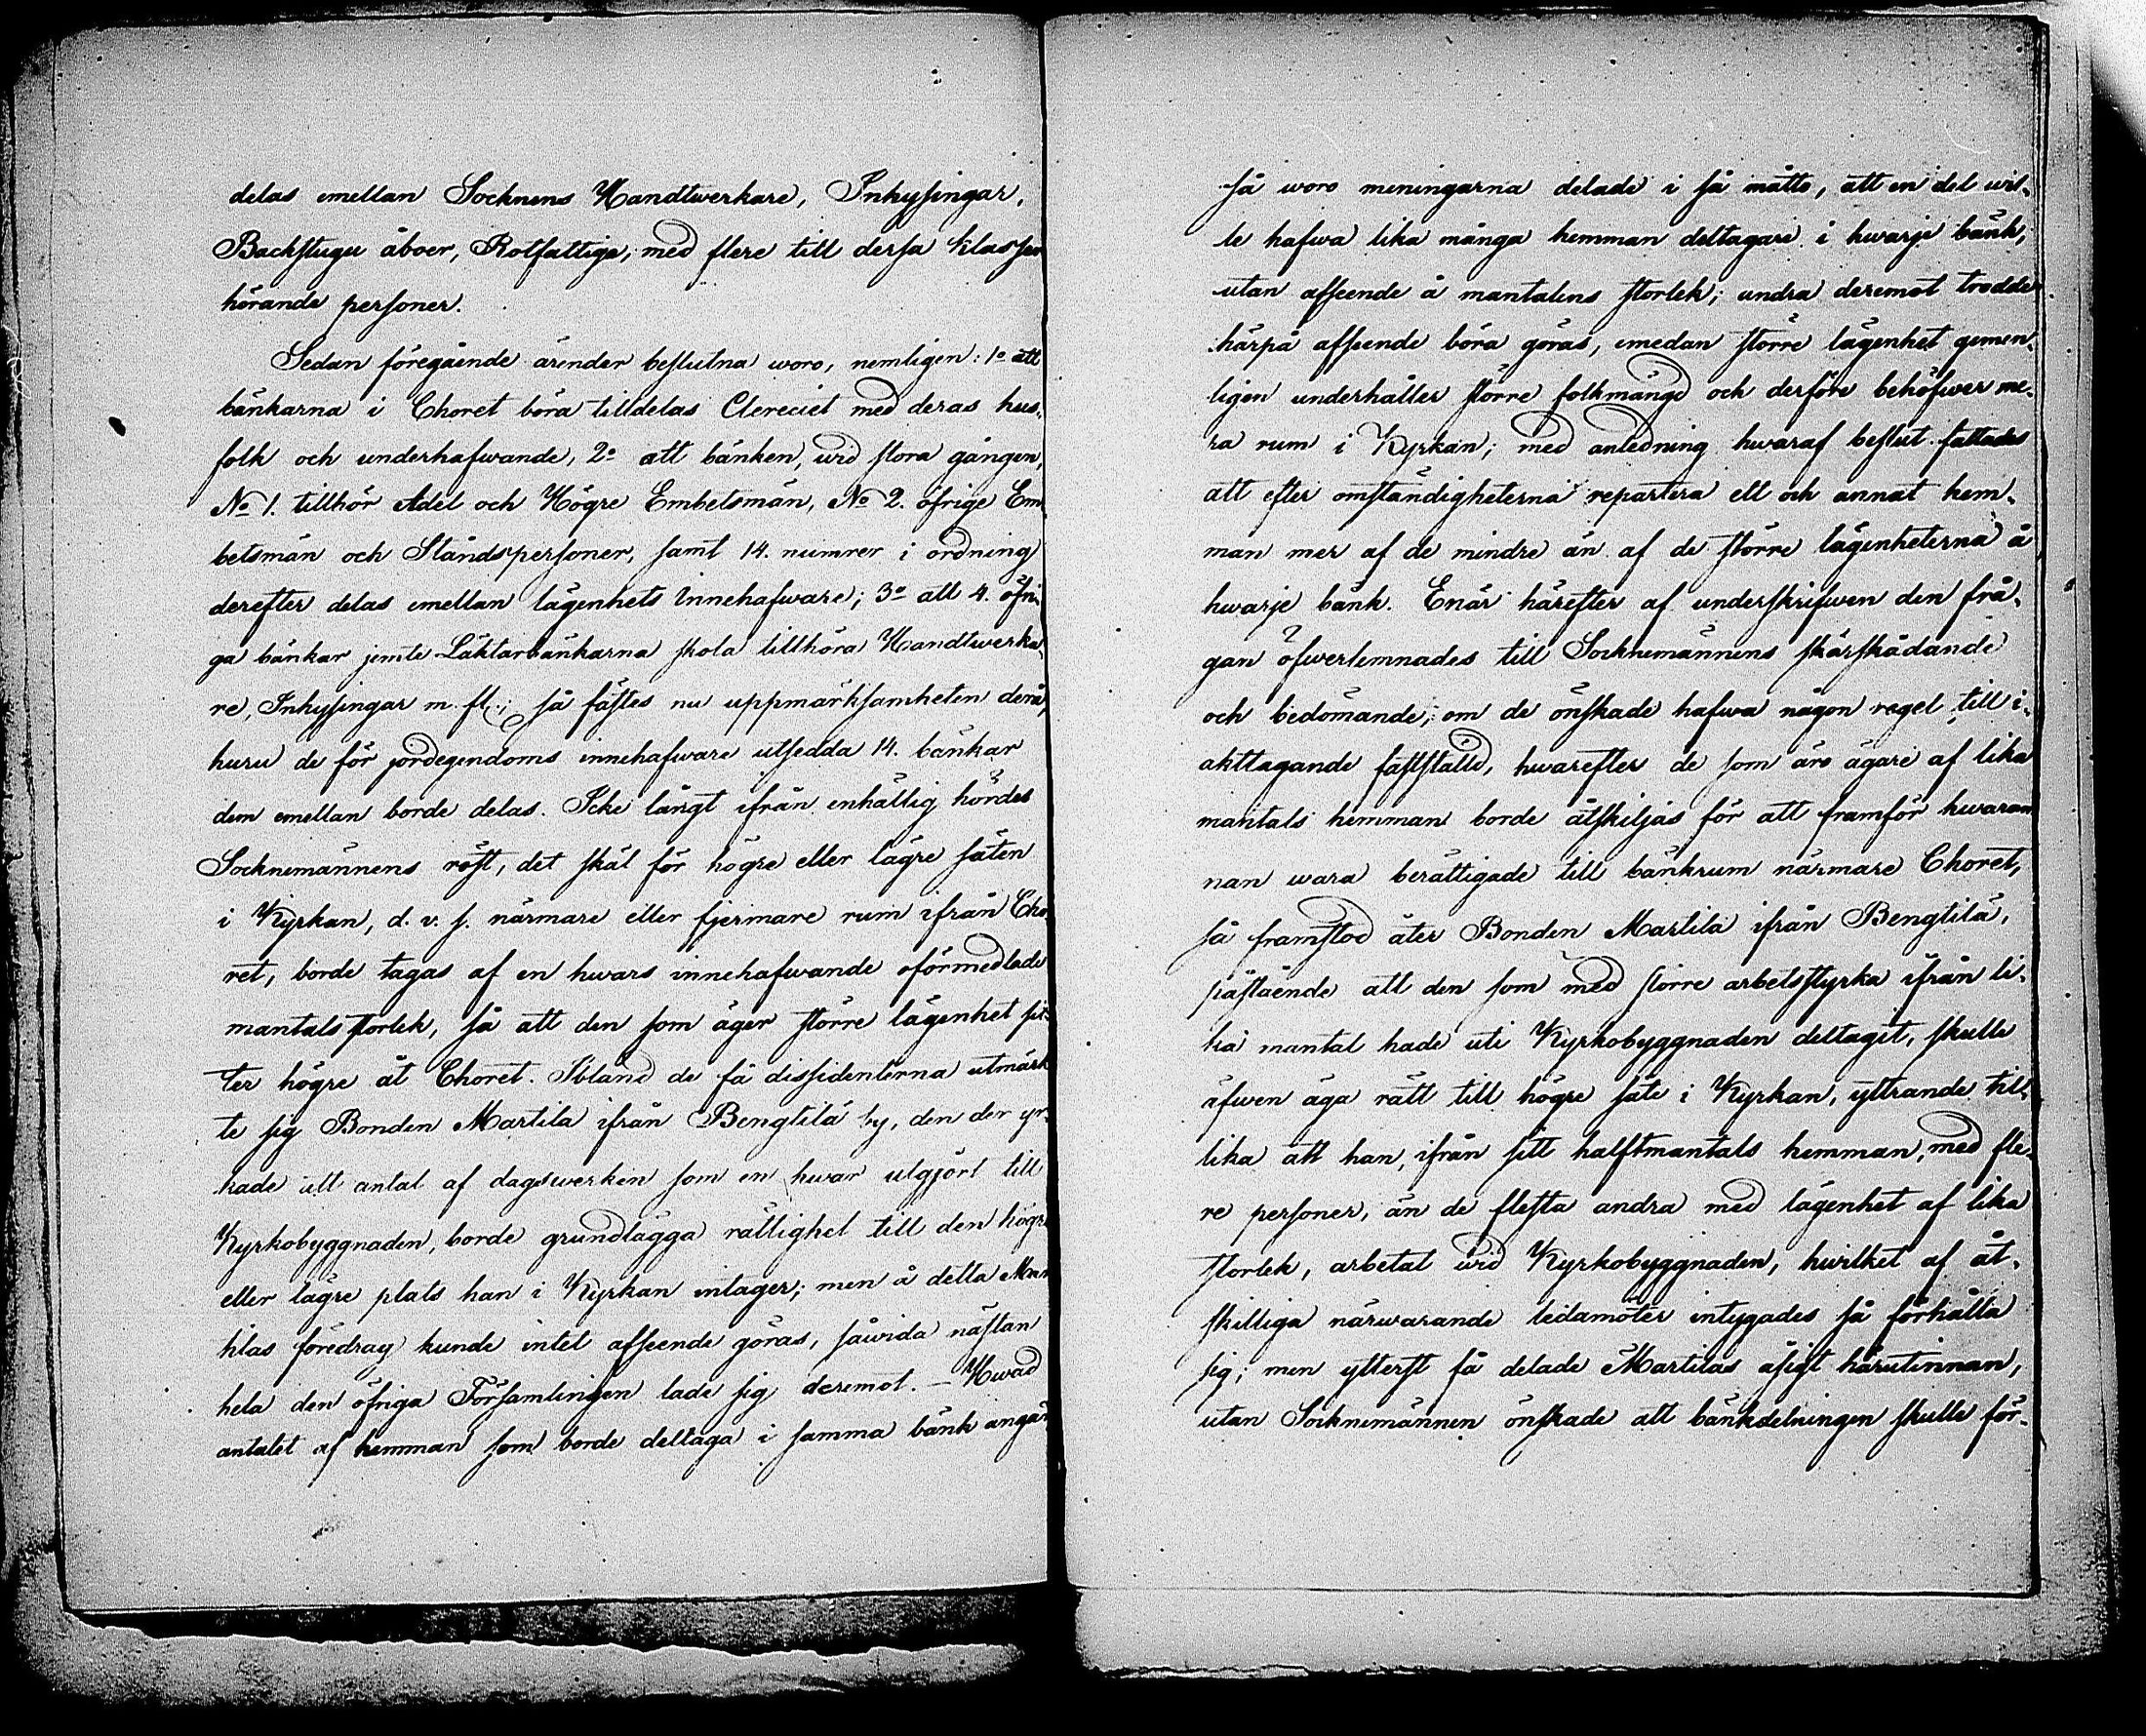 delas emellan Socknens Handtwerkare, Inhysingar,
Backstugu åboer, Rotfattige, med flere till dessa klasser
hörande personer.
Sedan föregående ärender beslutna woro, nemligen: 1o att
bänkarna i Choret böra tilldelas Clereciet med deras hus-
folk och underhafwande, 2o att bänken, wid stora gången,
No 1. tillhör Adel och Högre Embetsmän, No 2. öfrige Em-
betsmän och Ståndspersoner, samt 14. numrer i ordning
derefter delas emellan lägenhets innehafware; 3o att 4. öfri-
ga bänkar jemte Läktarbänkarna skola tillhöra Handtwerka-
re, Inhysingar m. fl.; så fästes nu uppmärksamheten derå,
huru de för jordegendoms innehafware utsedda 14. bänkar
dem emellan borde delas. Icke långt ifrån enhällig hördes
Socknemännens röst, det skäl för högre eller lägre säten
i Kyrkan, d. v. s. närmare eller fjermare rum ifrån Cho-
ret, borde tagas af en hwars innehafwande oförmedlade
mantals storlek, så att den som äger större lägenhet sit-
ter högre åt Choret. Ibland de få dissidenterna utmärk-
te sig Bonden Martila ifrån Bengtilä by, den der yr-
kade att antal af dagswerken som en hwar utgjört till
Kyrkobyggnaden, borde grundlägga rättighet till den högre
eller lägre plats han i Kyrkan intager; men å detta Mar-
tilas föredrag kunde intet afseende göras, såwida nästan
hela den öfriga Församlingen lade sig deremot. – Hwad
antalet af hemman som borde deltaga i samma bänk angår
så woro meningarna delade i så måtto, att en del wil-
le hafwa lika många hemman deltagare i hwarje bänk,
utan afseende å mantalens storlek; andra deremot trodde
härpå afseende böra göras, emedan större lägenhet gemen-
ligen underhåller större folkmängd och derföre behöfwer me-
ra rum i Kyrkan; med anledning hwaraf beslut fattades
att efter omständigheterna repartera ett och annat hem-
man mer af de mindre än af de större lägenheterna å
hwarje bänk. Enär härefter af underskrifwen den frå-
gan öfwerlemnades till Socknemännens skärskådande
och bedömande, om de önskade hafwa någon regel till i-
akttagande fastställd, hwarefter de som äro ägare af lika
mantals hemman borde åtskiljas för att framför hwaran-
nan wara berättigade till bänkrum närmare Choret,
så framstod åter Bonden Martila ifrån Bengtilä,
påstående att den som med större arbetsstyrka ifrån li-
ka mantal hade uti Kyrkobyggnaden deltagit, skulle
äfwen äga rätt till högre säte i Kyrkan, yttrande til-
lika att han, ifrån sitt halftmantals hemman, med fle-
re personer, än de flesta andra med lägenhet af lika
storlek, arbetat wid Kyrkobyggnaden, hwilket af åt-
skilliga närwarande ledamöter intygades så förhålla
sig; men ytterst få delade Martilas åsigt härutinnan,
utan Socknemännen önskade att bänkdelningen skulle för-